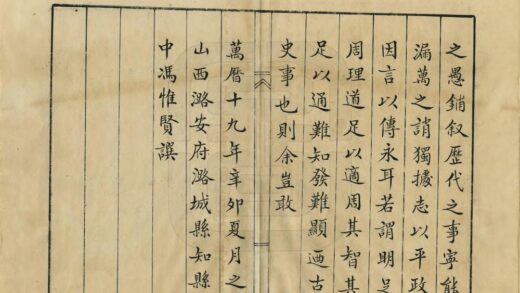 之愚鋪叙歷代之事寧能
漏萬之誚獨據志以平政
因言以傳永耳若謂明足
周理道足以適周其智其
足以通難知發難顯迺古
史事也則余豈敢
萬曆十九年辛卯夏月之
山西潞安府潞城縣知縣
中馮惟賢譔